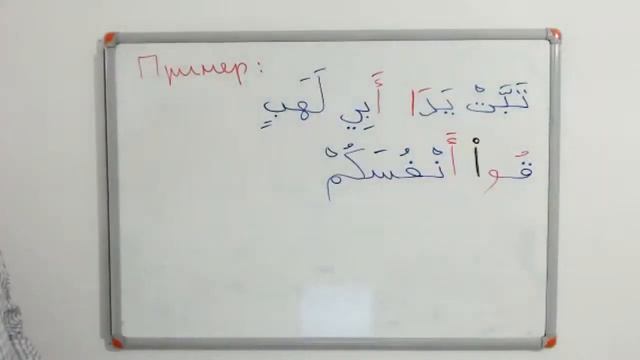 Пример:
تَبَّتْ يَدَا أَبِي لَهَبٍ
قُواْ أَنْفُسَكُمْ